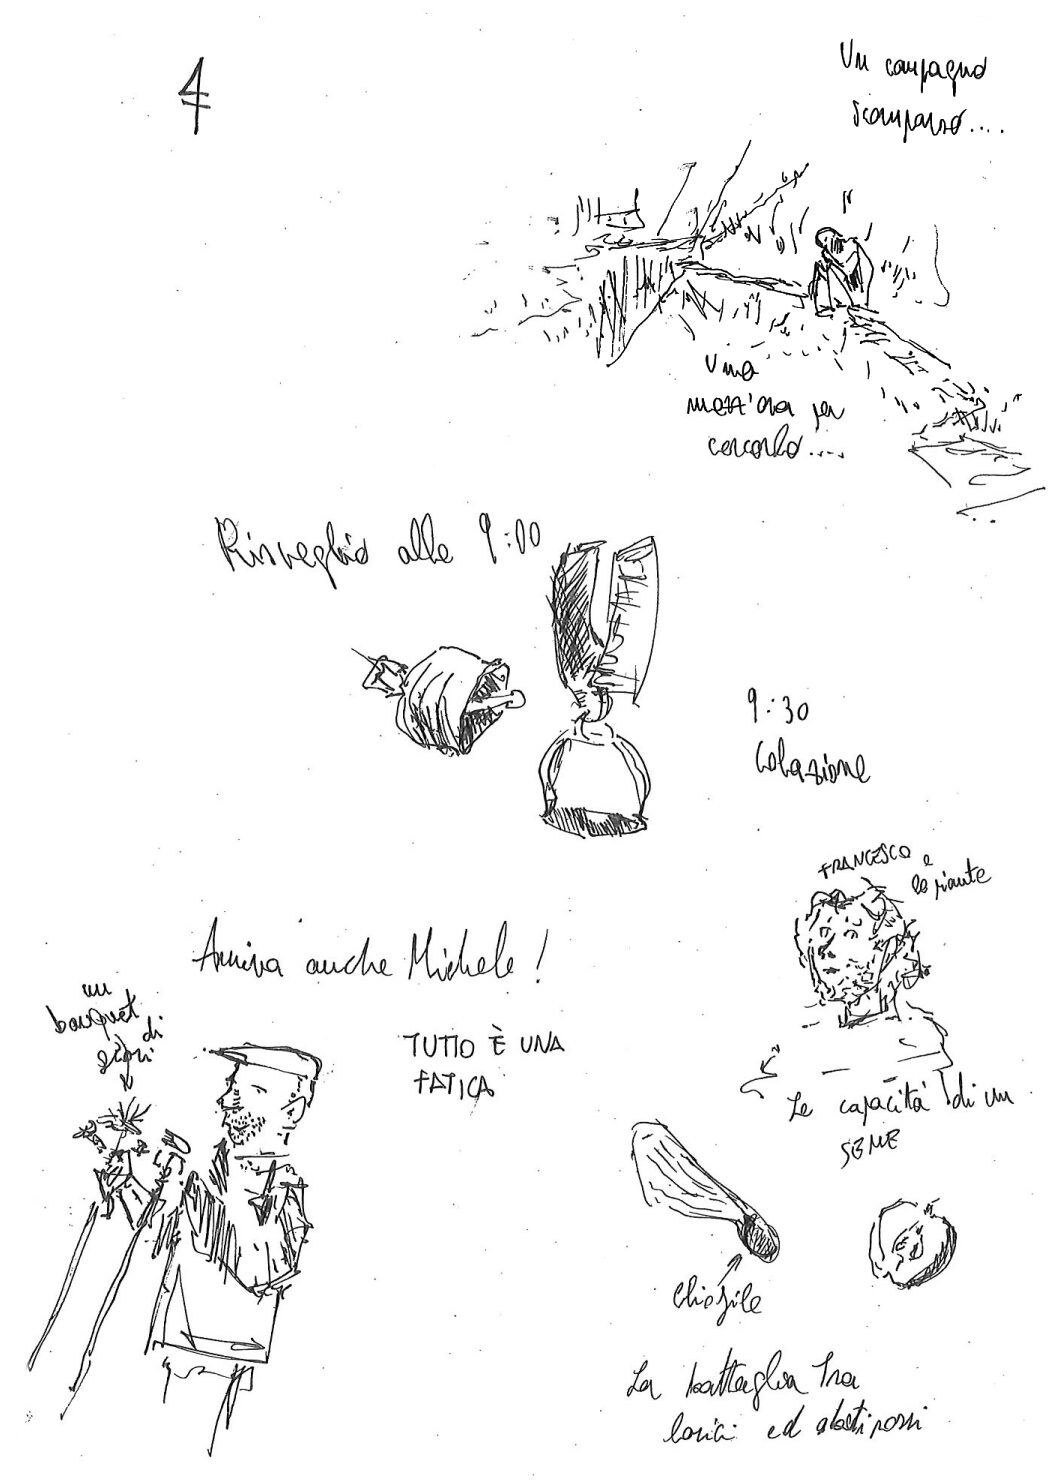 4
Un compagno
scomparso....
Una
mezz'ora per
cercarlo....
Risveglio alle 9:00
9:30
Colazione
FRANCESCO e
le piante
Arriva anche Michele!
un
bouquet
di
fiori
TUTTO È UNA
FATICA
Le capacità di un
SEME
La battaglia tra
larici ed